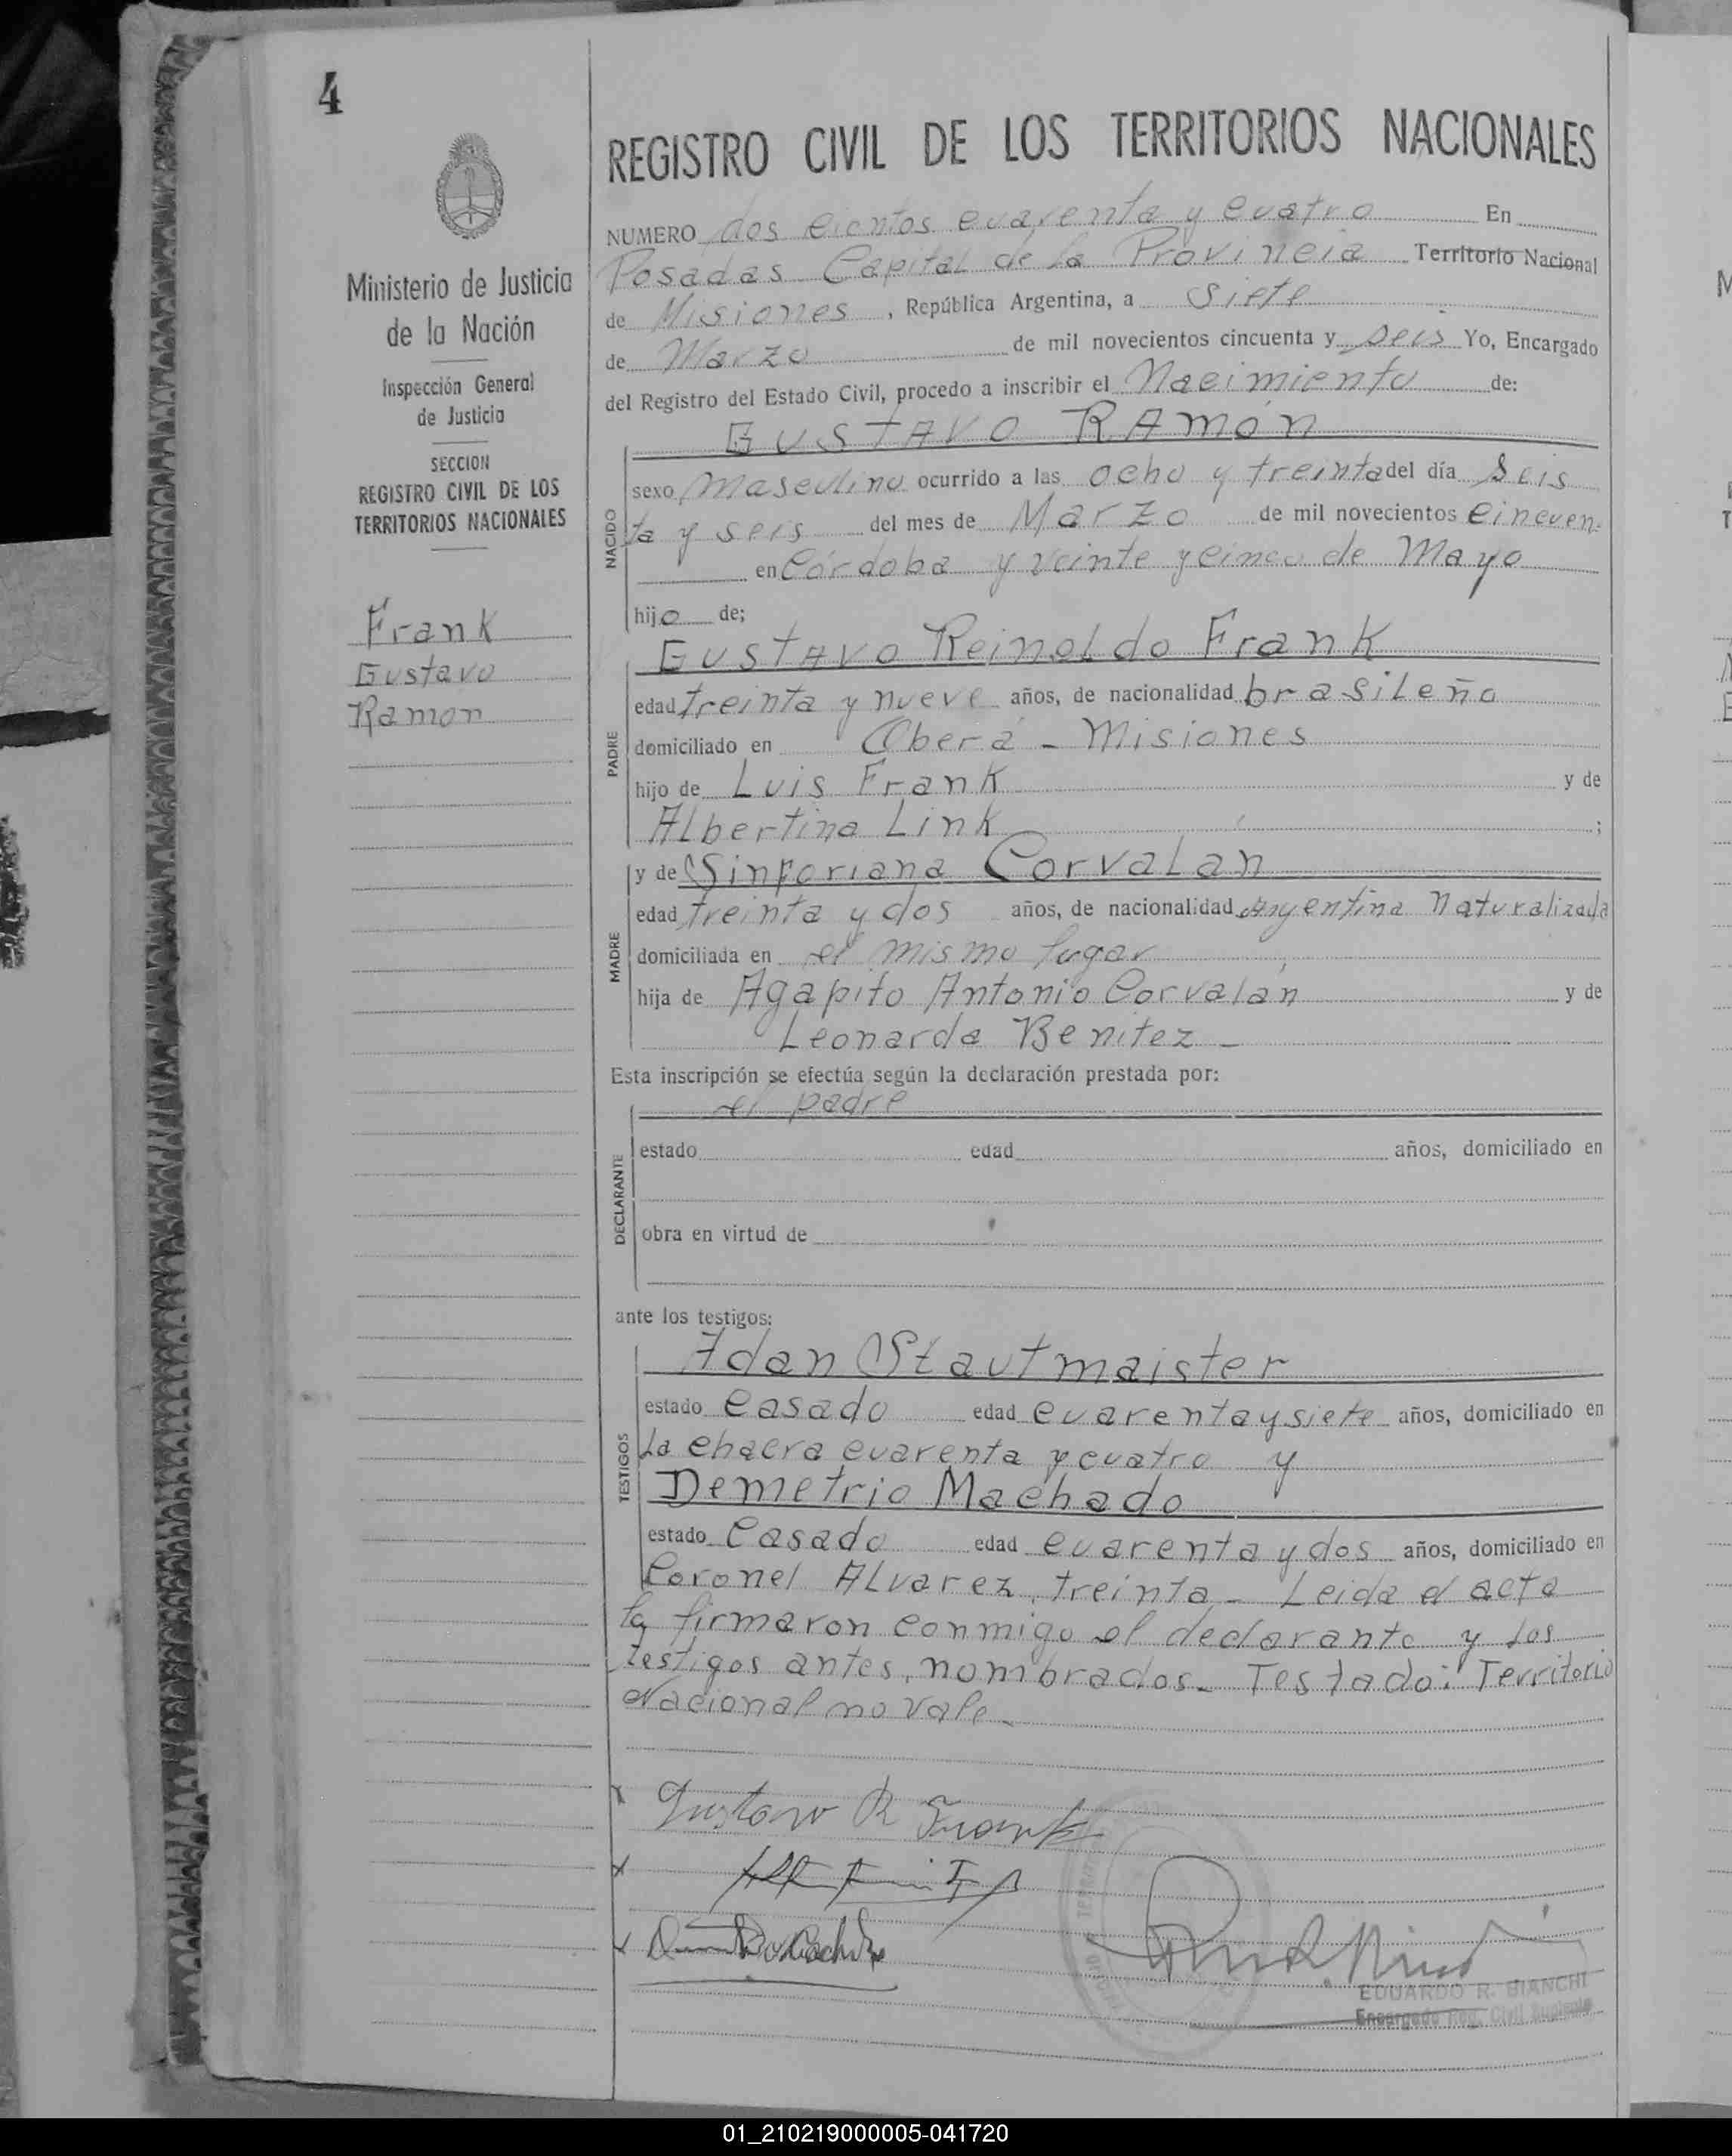 4
Ministerio de Justicia
de la Nación
Inspección General
de Justicia
SECCION
REGISTRO CIVIL DE LOS
TERRITORIOS NACIONALES
Frank
Gustavo
Ramon
REGISTRO CIVIL DE LOS TERRITORIOS NACIONALES
NUMERO dos cientos cuarenta y cuatro En
Posadas Capital de la Provincia Territorio Nacional
de Misiones, República Argentina, a siete
de Marzo de mil novecientos cincuenta y seis Yo, Encargado
del Registro del Estado Civil, procedo a inscribir el Nacimiento de:
GUSTAVO RAMÓN
NACIDO
sexo Masculino ocurrido a las ocho y treinta del día seis
del mes de Marzo de mil novecientos cincuen-
ta y seis
en Córdoba y veinte y cinco de Mayo
hijo de;
PADRE
Gustavo Reinoldo Frank
edad treinta y nueve años, de nacionalidad brasileño
domiciliado en Oberá - Misiones
hijo de Luis Frank y de
Albertina Link ;
MADRE
y de Sinforiana Corvalán
edad treinta y dos años, de nacionalidad Argentina Naturalizada
domiciliada en el mismo lugar
hija de Agapito Antonio Corvalán y de
Leonarda Benitez -
Esta inscripción se efectúa según la declaración prestada por:
DECLARANTE
el padre
estado edad años, domiciliado en
obra en virtud de
ante los testigos:
TESTIGOS
Adan Stautmaister
estado casado edad cuarenta y siete años, domiciliado en
La chacra cuarenta y cuatro y
Demetrio Machado
estado casado edad cuarenta y dos años, domiciliado en
Coronel Alvarez treinta - Leida el acta
la firmaron conmigo el declarante y los
testigos antes nombrados - Testado: Territorio
Nacional no vale -
Gustavo R Frank
EDUARDO R. BIANCHI
Encargado Reg. Civil
01_210219000005-041720